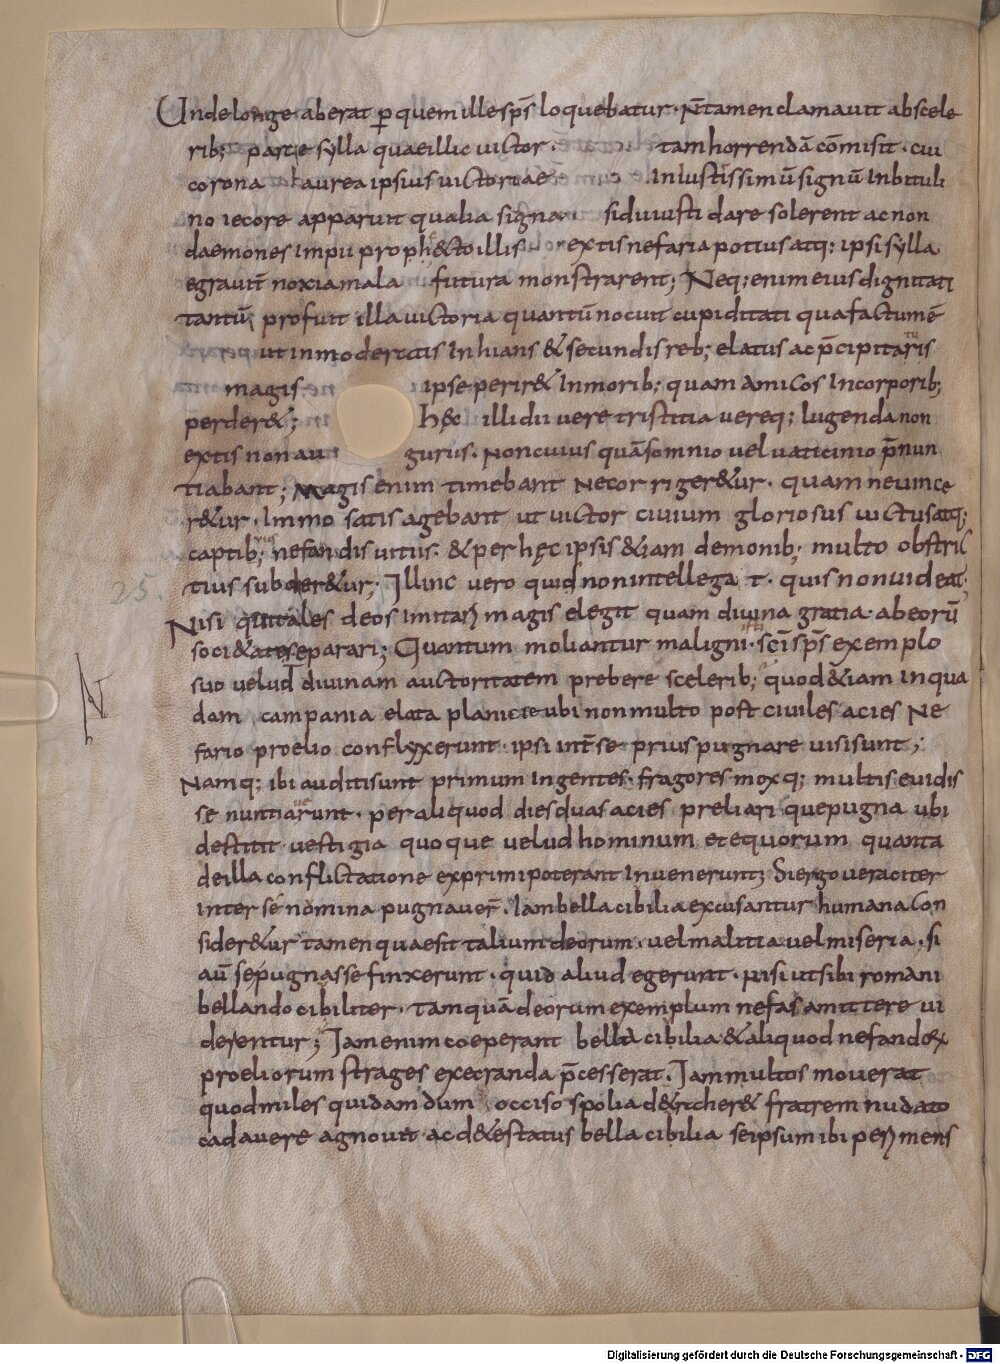 Unde longe aberat ꝑ quem ille sp̄s loquebatur· N̄ tamen clamauit abscele
rib; parce sylla quae illic uictor· tam horrendā cōmisit· cui
corona aurea ipsius uictoriae Inlustissimū signū Inbituli
no iecore apparuit qualia signa si diuiusti dare solerent ac non
daemones Impii profecto illis extis nefaria potius atq; ipsi sylla
egrauit̄ noxia mala futura monstrarent; Neq; enim eius dignitati
tantū profuit illa uictoria quantū nocuit cupiditati qua factum ē
ut inmoderatis Inhians & secundis reb; elatus ac p̄cipitatus
magis ipse perir& Inmorib; quam Amicos Incorporib;
perder&; hęc illi dii vere tristitia vereq; lugenda non
extis non au gurus· Non cuius quā somnio uel uaticinio p̄nun
tiabant; Magis enim timebant Ne corriger&ur· quam ne uince
r&ur· Immo satis agebant ut uictor ciuium gloriosus uictus atq;
captib; nefandis uitiis· & per hęc ipsis &iam demonib; multo obstric
tius subder&ur; Illinc vero quis non intellegat· quis non uideat·
25.
Nisi qui tales deos imitari magis elegit quam diuina gratia· abeorū
soci&ate separari; Quantum moliantur maligni isti sp̄s exemplo
suo velud diuinam auctoritatem prebere scelerib; quod &iam In qua
dam campania elata planicie ubi non multo post ciuiles acies Ne
fario proelio conflyxerunt· ipsi int̄ se prius pugnare uisi sunt;
Namq; ibi auditi sunt primum Ingentes fragores moxq; multi se uidis
se nuntiauerunt· per aliquod dies duas acies preliari que pugna ubi
destitit uestigia quoque velud hominum et equorum quanta
de illa conflictatione exprimi poterant Inuenerunt; Si ergo veraciter
inter se nomina pugnauer̄· Iam bella cibilia excusantur humana Con
sider&ur tamen quae sit talium deorum· vel malitia vel miseria· si
au̅ se pugnasse finxerunt· quid aliud egerunt· Nisi ut sibi romani
bellando cibiliter· tamquā deorum exemplum nefas amittere ui
derentur; Iam enim coeperant bella cibilia & aliquod nefandor
proeliorum strages execranda p̄cesserat· Iam multos mouerat
quod miles quidam dum occiso spolia d&raher& fratrem nudato
cadavere agnouit ac d&estatus bella cibilia se ipsum ibi peremens
Digitalisierung gefördert durch die Deutsche Forschungsgemeinschaft - DFG